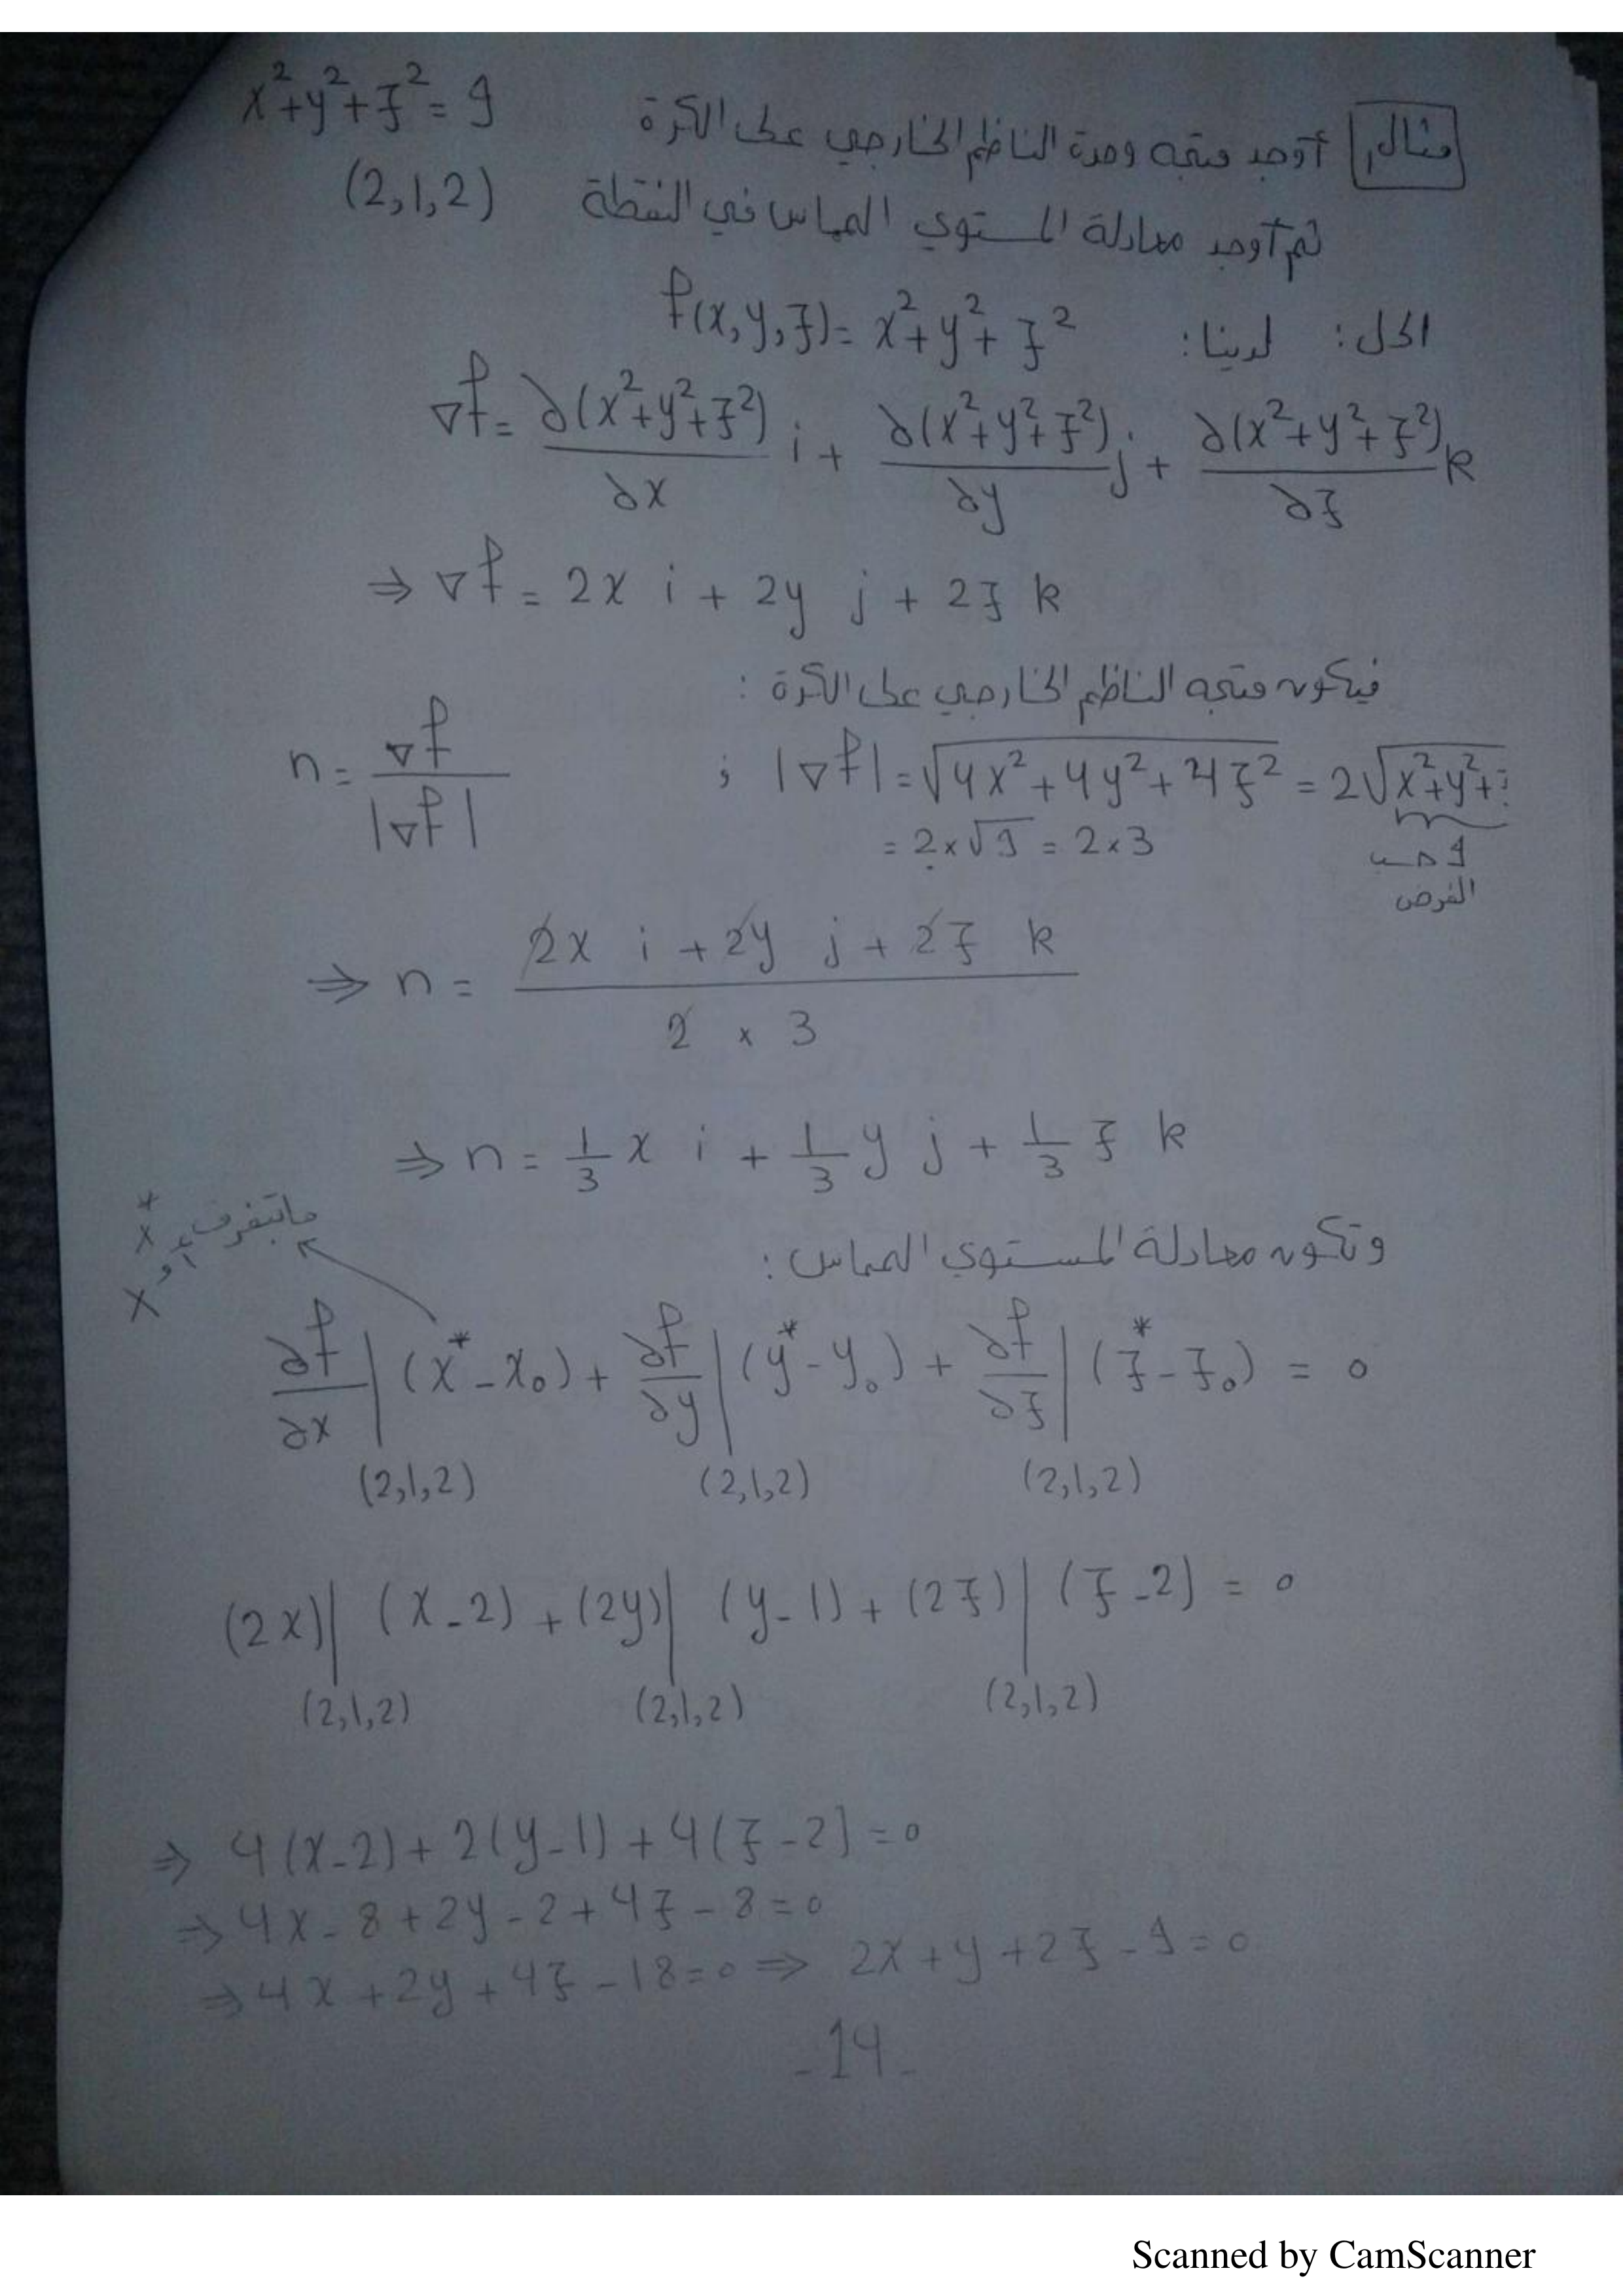 مثال أوجد متجه وحدة الناظم الخارجي على الكرة x²+y²+z²=9
ثم أوجد معادلة المستوي المماس في النقطة (2,1,2)
الحل: لدينا: f(x,y,z)= x²+y²+z²
∇f= ∂(x²+y²+z²)/∂x i + ∂(x²+y²+z²)/∂y j + ∂(x²+y²+z²)/∂z k
⇒ ∇f = 2x i + 2y j + 2z k
فيكون متجه الناظم الخارجي على الكرة :
n= ∇f/|∇f| ; |∇f|=√(4x²+4y²+4z²) = 2√(x²+y²+
= 2×√9 = 2×3
9 حسب
الفرض
⇒ n = (2x i + 2y j + 2z k)/(2 × 3)
⇒ n = 1/3 x i + 1/3 y j + 1/3 z k
وتكون معادلة المستوي المماس:
مابتفرق x* أو x
∂f/∂x|(2,1,2) (x*-x₀) + ∂f/∂y|(2,1,2) (y*-y₀) + ∂f/∂z|(2,1,2) (z*-z₀) = 0
(2x)|(2,1,2) (x-2) + (2y)|(2,1,2) (y-1) + (2z)|(2,1,2) (z-2) = 0
⇒ 4(x-2)+2(y-1)+4(z-2)=0
⇒ 4x-8+2y-2+4z-8=0
⇒ 4x+2y+4z-18=0 ⇒ 2x+y+2z-9=0
-14-
Scanned by CamScanner